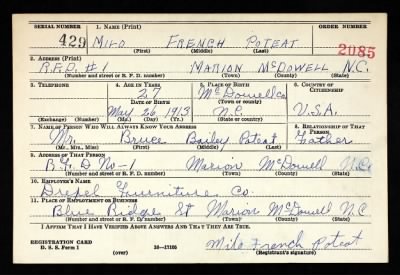 SERIAL NUMBER 1. NAME (Print) ORDER NUMBER
429 MILO FRENCH POTEAT 2085
(First) (Middle) (Last)
2. ADDRESS (Print)
R.F.D. #1 MARION McDOWELL N.C.
(Number and street or R. F. D. number) (Town) (County) (State)
3. TELEPHONE 4. AGE IN YEARS 5. PLACE OF BIRTH 6. COUNTRY OF CITIZENSHIP
27 McDowell Co
DATE OF BIRTH (Town or county)
May 26 1913 N.C. U.S.A.
(Exchange) (Number) (Mo.) (Day) (Yr.) (State or country)
7. NAME OF PERSON WHO WILL ALWAYS KNOW YOUR ADDRESS 8. RELATIONSHIP OF THAT PERSON
Mr. Bruce Bailey Poteat Father
(Mr., Mrs., Miss) (First) (Middle) (Last)
9. ADDRESS OF THAT PERSON
R.F.D No-1 Marion McDowell N.C.
(Number and street or R. F. D. number) (Town) (County) (State)
10. EMPLOYER'S NAME
Drexel Furniture Co.
11. PLACE OF EMPLOYMENT OR BUSINESS
Blue Ridge St Marion McDowell N.C
(Number and street or R. F. D. number) (Town) (County) (State)
I AFFIRM THAT I HAVE VERIFIED ABOVE ANSWERS AND THAT THEY ARE TRUE.
REGISTRATION CARD
D. S. S. Form 1 16—17105 Milo French Poteat
(over) (Registrant's signature)